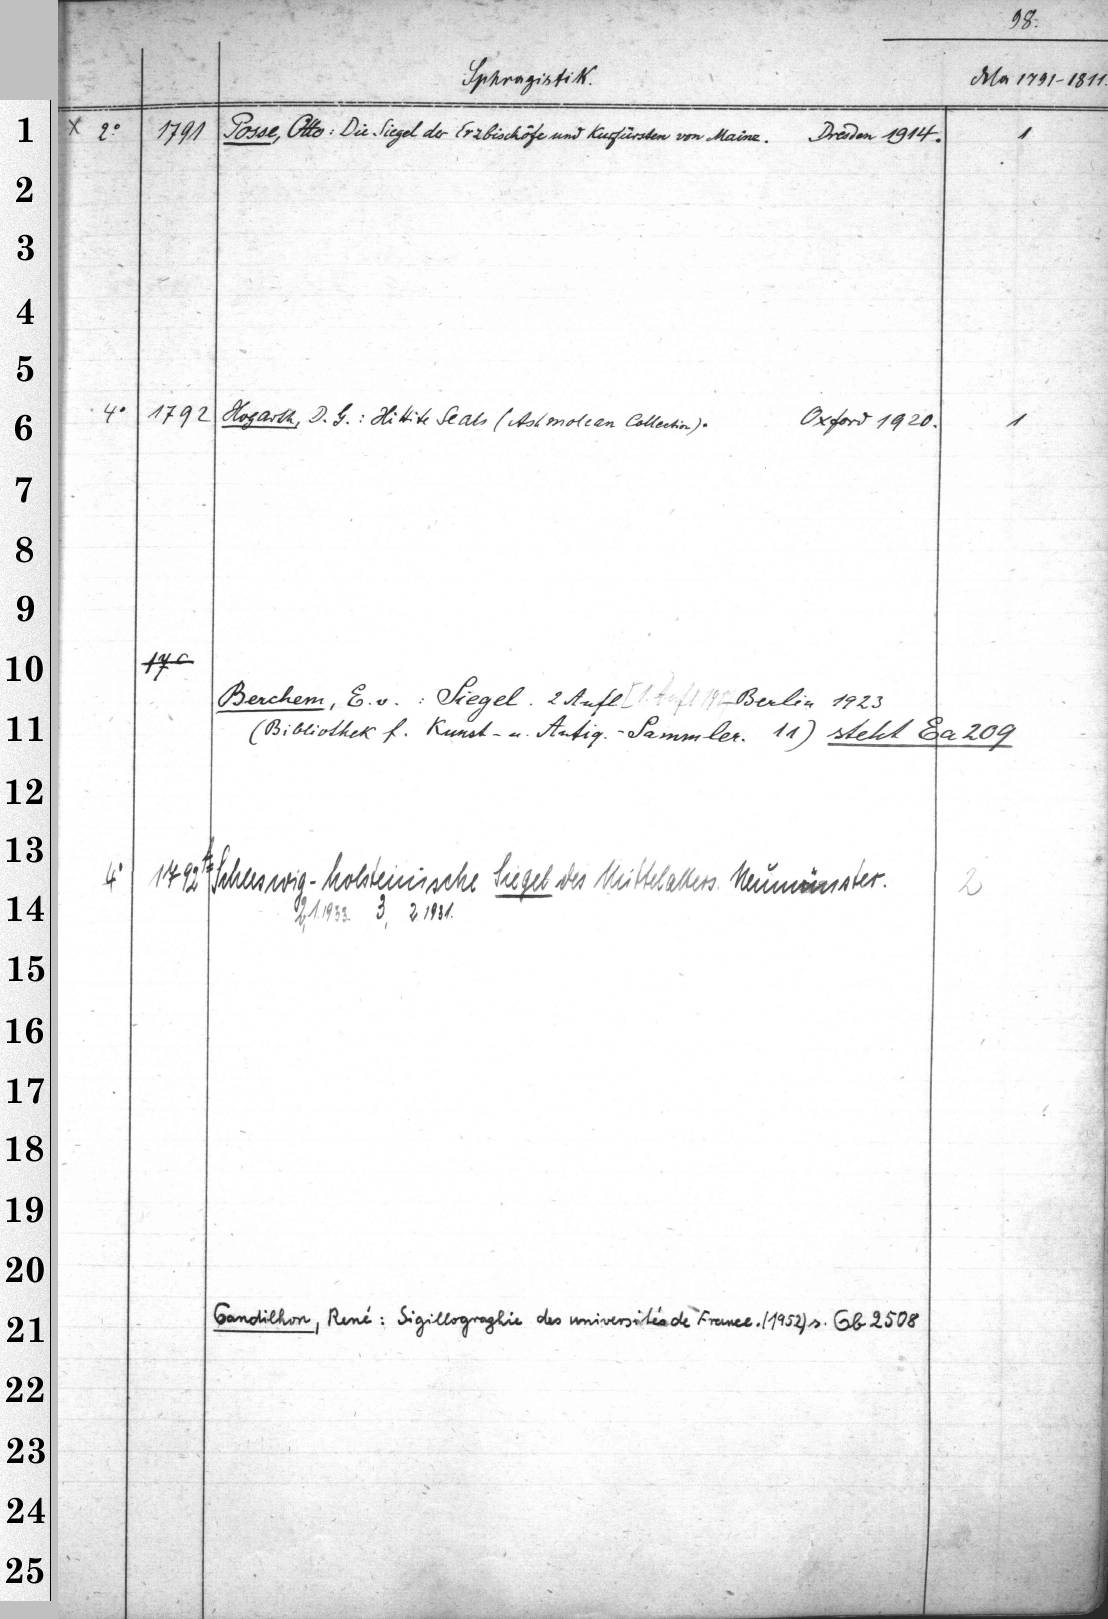 98.
Sphragistik. Ma 1791-1811.
1 x 2° 1791 Posse, Otto: Die Siegel der Erzbischöfe und Kurfürsten von Mainz. Dresden 1914. 1
2
3
4
5
6 4° 1792 Hogarth, D. G.: Hittite Seals (Ashmolean Collection). Oxford 1920. 1
7
8
9
10 17
Berchem, E. v. : Siegel. 2 Aufl [1. Aufl Berlin 1923
11 (Bibliothek f. Kunst- u. Antiq.-Sammler. 11) steht Ea 209
12
13
4° 1792 Schleswig-holsteinische Siegel des Mittelalters. Neumünster. 2
14 2,1.1933. 3, 2 1931.
15
16
17
18
19
20
21 Gandilhon, René: Sigillographie des universités de France. (1952) s. Gb 2508
22
23
24
25